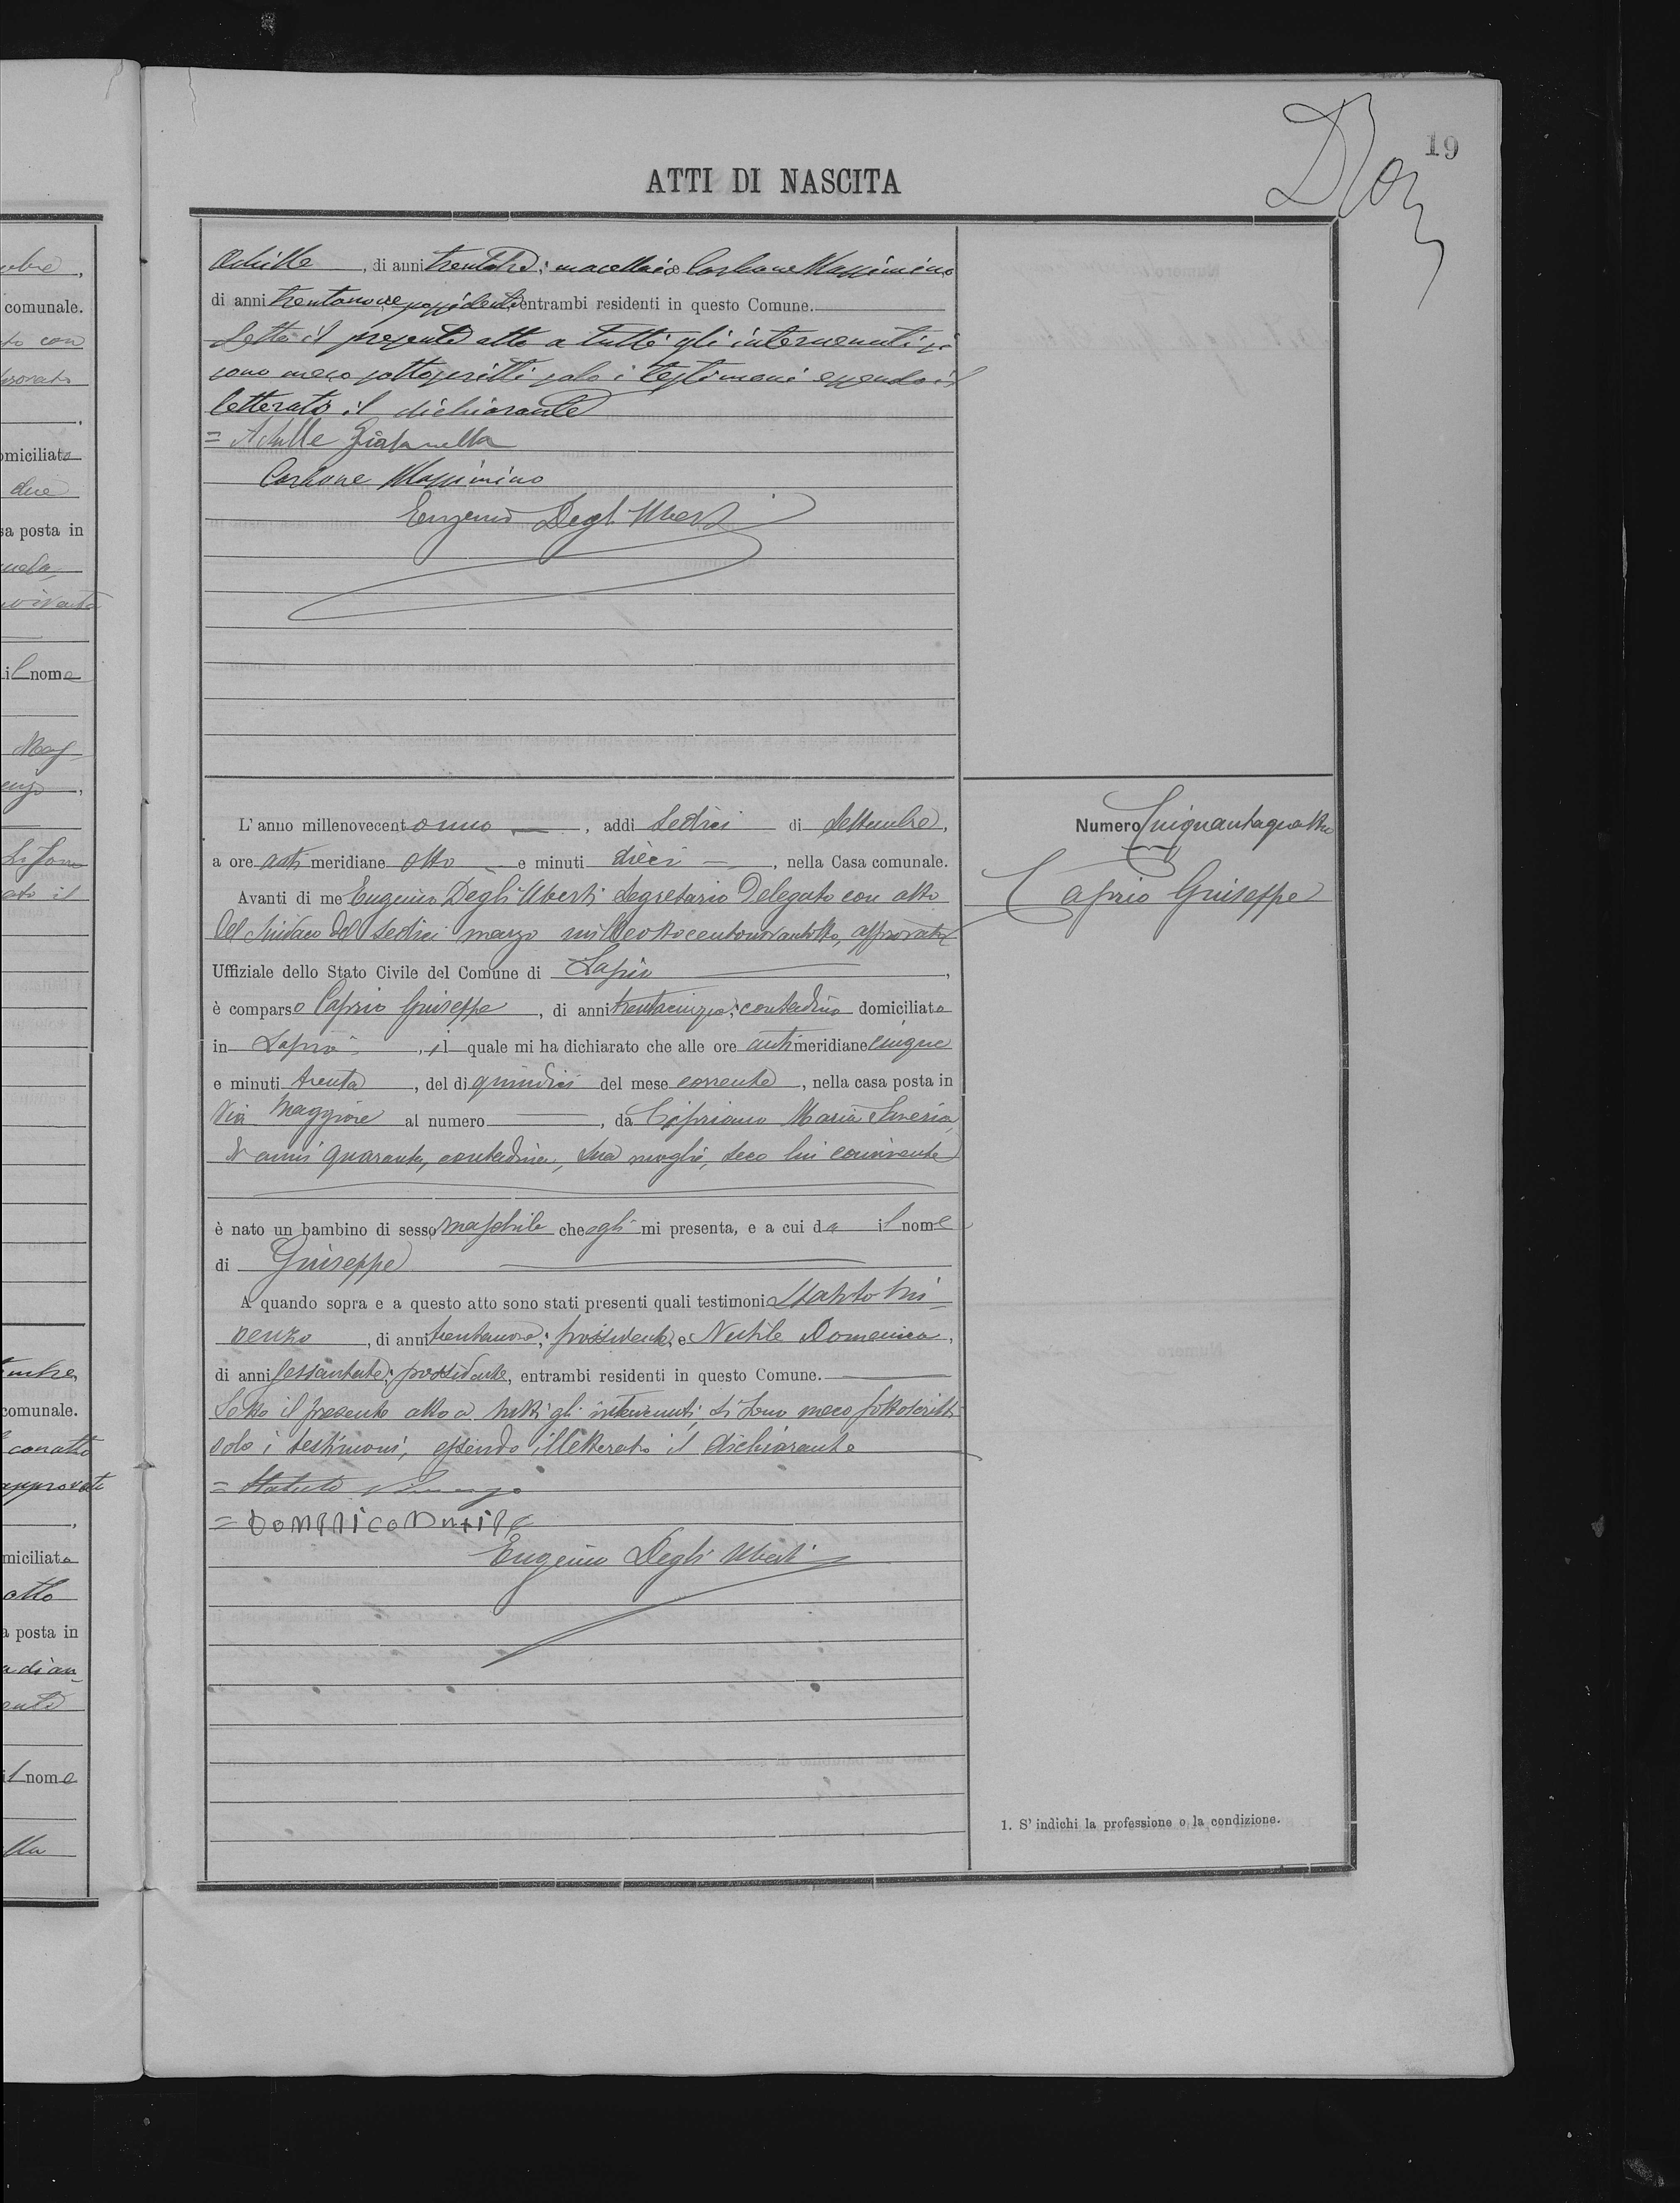 ubre,
comunale.
to con
provato
omiciliato
due
sa posta in
nuela
il nome
comunale.
con atto
approvato
miciliata
otto
a posta in
a di an
il nome
lla
19
ATTI DI NASCITA
Achille, di anni trentatre; macellaio e Carbone Massimino
di anni trentanove, possidente, entrambi residenti in questo Comune.
Letto il presente atto a tutti gli intervenuti si
sono meco sottoscritti solo i testimoni essendo il
letterato il dichiarante
= Achille
Carbone Massimino
Eugenio Degli Uberti
L'anno millenovecentouno, addì sedici di Settembre,
a ore antimeridiane otto e minuti dieci, nella Casa comunale.
Avanti di me Eugenio Degli Uberti Segretario Delegato con atto
del Sindaco del sedici marzo milleottocentonovantotto, approvato
Uffiziale dello Stato Civile del Comune di Lapio,
è comparso Caprio Giuseppe, di anni trentacinque, contadino domiciliato
in Lapio, il quale mi ha dichiarato che alle ore antimeridiane cinque
e minuti trenta, del dì quindici del mese corrente, nella casa posta in
Via Maggiore al numero, da Cipriano Maria Saveria,
di anni quaranta, contadina, sua moglie, seco lui convivente
è nato un bambino di sesso maschile che egli mi presenta, e a cui da il nome
di Giuseppe
A quando sopra e a questo atto sono stati presenti quali testimoni Statuto Vin
cenzo, di anni trentanove, possidente, e Nutile Domenico,
di anni sessantatre, possidente, entrambi residenti in questo Comune.
Letto il presente atto a tutti gli intervenuti, si sono meco sottoscritti
solo i testimoni, essendo illetterato il dichiarante
= Statuto Vincenzo
= Domenico Nutile
Eugenio Degli Uberti
Numero Cinquantaquattro
Caprio Giuseppe
1. S'indichi la professione o la condizione.